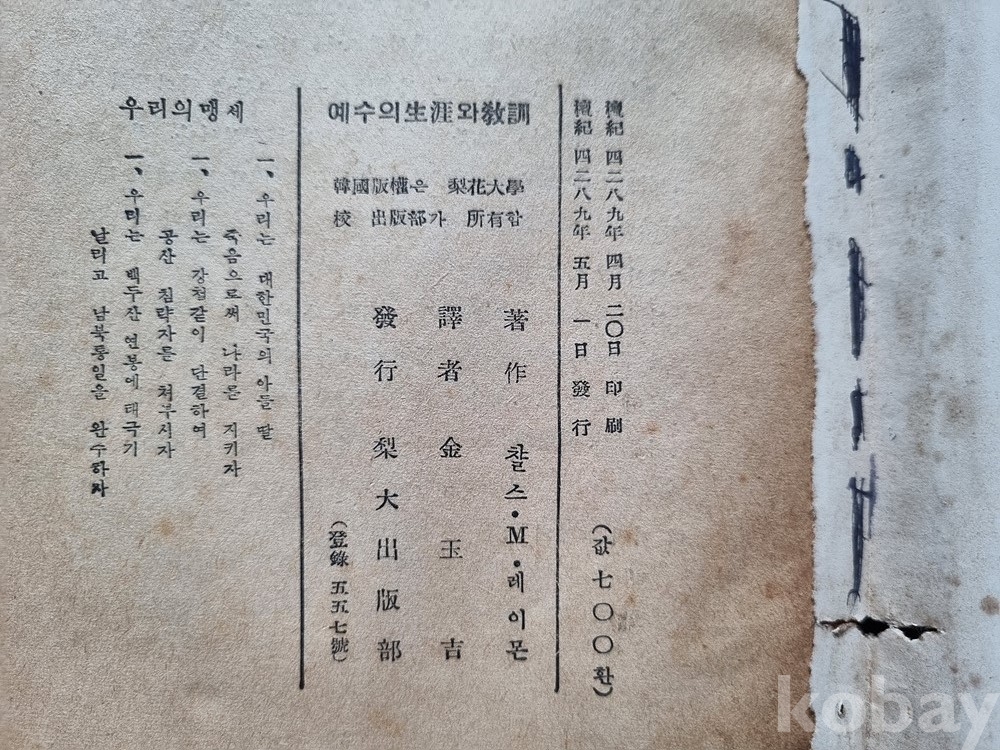 檀紀 四二八九年 四月 二〇日 印刷
檀紀 四二八九年 五月 一日 發行
(값 七〇〇환)
예수의 生涯와 敎訓
韓國版權은 梨花大學
校 出版部가 所有함
著作 찰스·M·레이몬
譯者 金玉吉
發行 梨大出版部
(登錄 五五七號)
우리의 맹세
一、우리는 대한민국의 아들 딸
죽음으로써 나라를 지키자
一、우리는 강철같이 단결하여
공산 침략자를 처부시자
一、우리는 백두산 연봉에 태극기
날리고 남북통일을 완수하자
kobay